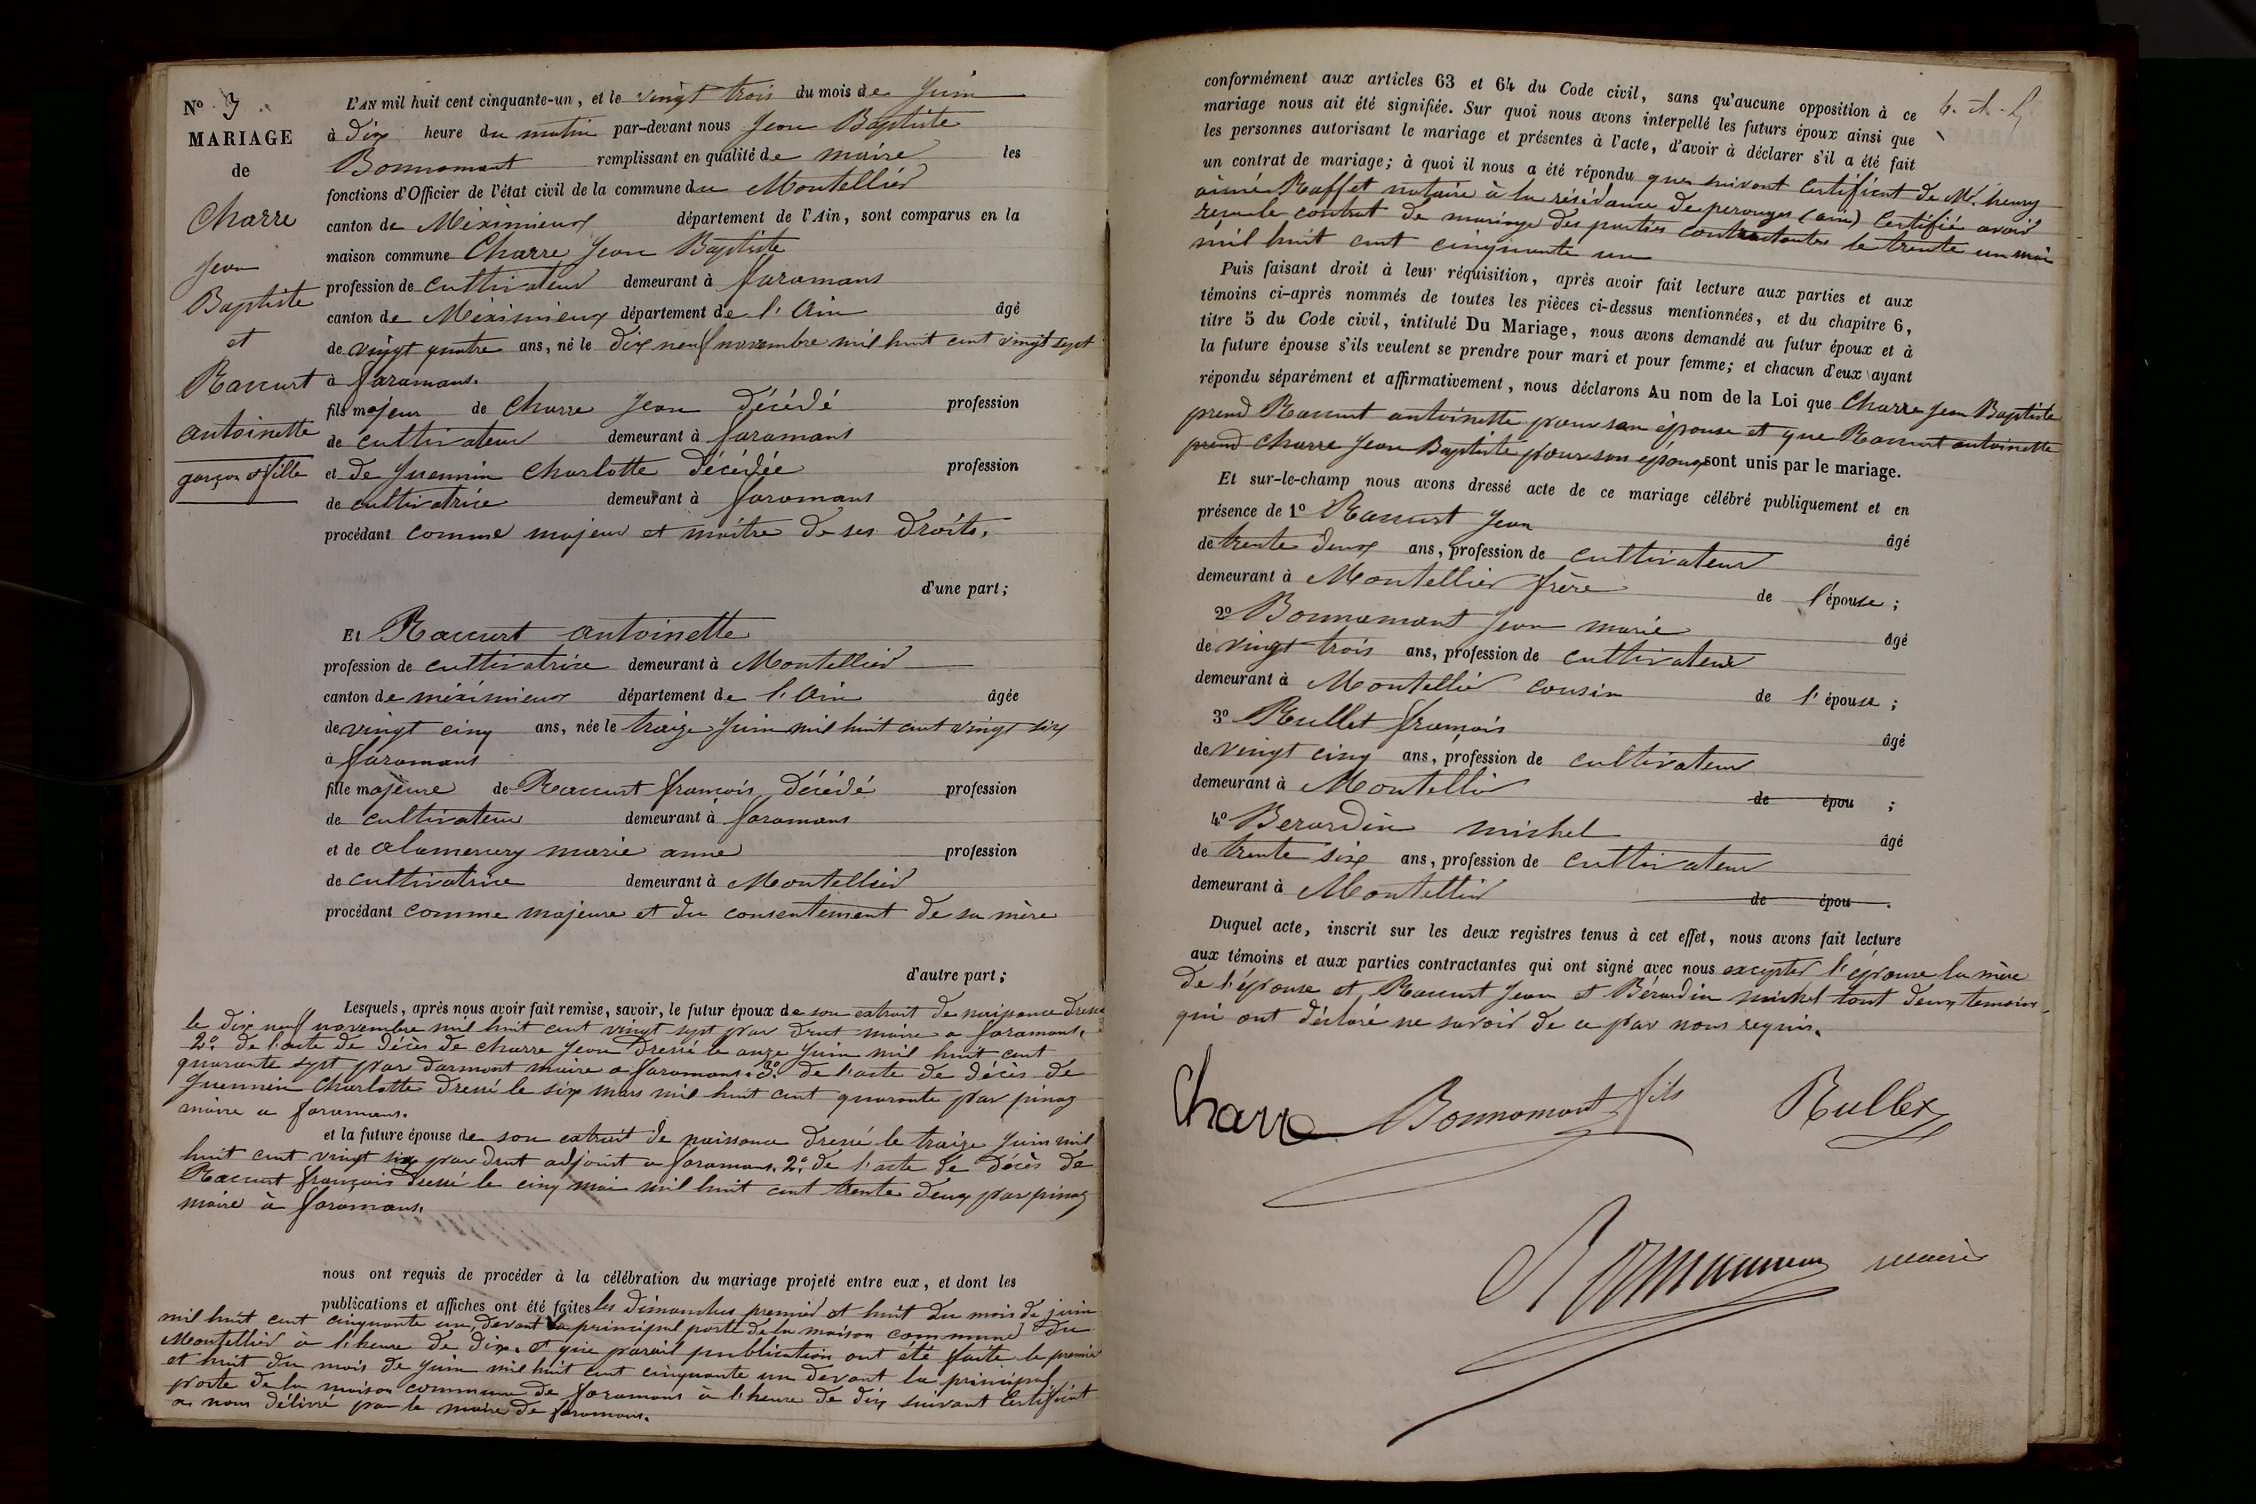 N° 3
MARIAGE
de
Charre
Jean
Baptiste
et
Raccurt
antoinette
garçon & fille
L'AN mil huit cent cinquante-un, et le vingt trois du mois de Juin
à dix heure du matin par-devant nous Jean Baptiste
Bonnamant remplissant en qualité de maire les
fonctions d'Officier de l'état civil de la commune du Montellier
canton de Méximieux département de l'Ain, sont comparus en la
maison commune Charre Jean Baptiste
profession de cultivateur demeurant à faramans
canton de Méximieux département de l'Ain âgé
de vingt quatre ans, né le dix neuf novembre mil huit cent vingt sept
à faramans.
fils majeur de Charre Jean décédé profession
de cultivateur demeurant à faramans
et de Juennin Charlotte décédée profession
de cultivatrice demeurant à faramans
procédant comme majeur et maître de ses droits.
d'une part;
Et Raccurt antoinette
profession de cultivatrice demeurant à Montellier
canton de méximieux département de l'Ain âgée
de vingt cinq ans, née le traize Juin mil huit cent vingt six
à faramans
fille majeure de Raccurt françois décédé profession
de cultivateur demeurant à faramans
et de alamercery marie anne profession
de cultivatrice demeurant à Montellier
procédant comme majeure et du consentement de sa mère
d'autre part;
Lesquels, après nous avoir fait remise, savoir, le futur époux de son extrait de naissance dressé
le dix neuf novembre mil huit cent vingt sept par drut maire a faramans.
2° de l'acte de décès de charre Jean Dressé le onze Juin mil huit cent
quarante sept par darmont maire a faramans. 3° de l'acte de décès de
Juennin Charlotte dressé le six mars mil huit cent quarante par pinoz
maire a faramans.
et la future épouse de son extrait de naissance dressé le traize Juin mil
huit cent vingt six par drut adjoint a faramans. 2° de l'acte de décès de
Raccurt françois dressé le cinq mai mil huit cent trente deux par pinoz
maire à faramans.
nous ont requis de procéder à la célébration du mariage projeté entre eux, et dont les
publications et affiches ont été faites les dimanches premier et huit du mois de juin
mil huit cent cinquante un, devant la principal porte de la maison commune du
Montellier à l'heure de dix. et que pareil publication ont été faite le premier
et huit du mois de Juin mil huit cent cinquante un devant la principal
porte de la maison commune de faramans à l'heure de dix suivant Certificat
a nous délivré par le maire de faramans.
conformément aux articles 63 et 64 du Code civil, sans qu'aucune opposition à ce
mariage nous ait été signifiée. Sur quoi nous avons interpellé les futurs époux ainsi que
les personnes autorisant le mariage et présentes à l'acte, d'avoir à déclarer s'il a été fait
un contrat de mariage; à quoi il nous a été répondu que suivant certificat de M. henry
aimé Raffet notaire à la résidance de perouges (ain) Certifié avoir
reçu le contrat de mariage des parties contractantes le trente un mai
mil huit cent cinquante un
Puis faisant droit à leur réquisition, après avoir fait lecture aux parties et aux
témoins ci-après nommés de toutes les pièces ci-dessus mentionnées, et du chapitre 6,
titre 5 du Code civil, intitulé Du Mariage, nous avons demandé au futur époux et à
la future épouse s'ils veulent se prendre pour mari et pour femme; et chacun d'eux ayant
répondu séparément et affirmativement, nous déclarons Au nom de la Loi que Charre Jean Baptiste
prend Raccurt antoinette pour son épouse et que Raccurt antoinette
prend Charre Jean Baptiste pour son époux sont unis par le mariage.
Et sur-le-champ nous avons dressé acte de ce mariage célébré publiquement et en
présence de 1° Raccurt Jean âgé
de trente deux ans, profession de cultivateur
demeurant à Montellier frère de l'épouse;
2° Bonnamant Jean marie âgé
de vingt trois ans, profession de cultivateur
demeurant à Montellier cousin de l'épouse;
3° Rullet françois âgé
de vingt cinq ans, profession de cultivateur
demeurant à Montellier de épou ;
4° Berardin michel âgé
de trente six ans, profession de cultivateur
demeurant à Montellier de épou .
Duquel acte, inscrit sur les deux registres tenus à cet effet, nous avons fait lecture
aux témoins et aux parties contractantes qui ont signé avec nous excepter l'épouse la mère
de l'épouse et Raccurt Jean et Bérardin michel tout deux temoins
qui ont déclaré ne savoir de ce par nous requis.
Charre Bonnamant fils Rullet
maire